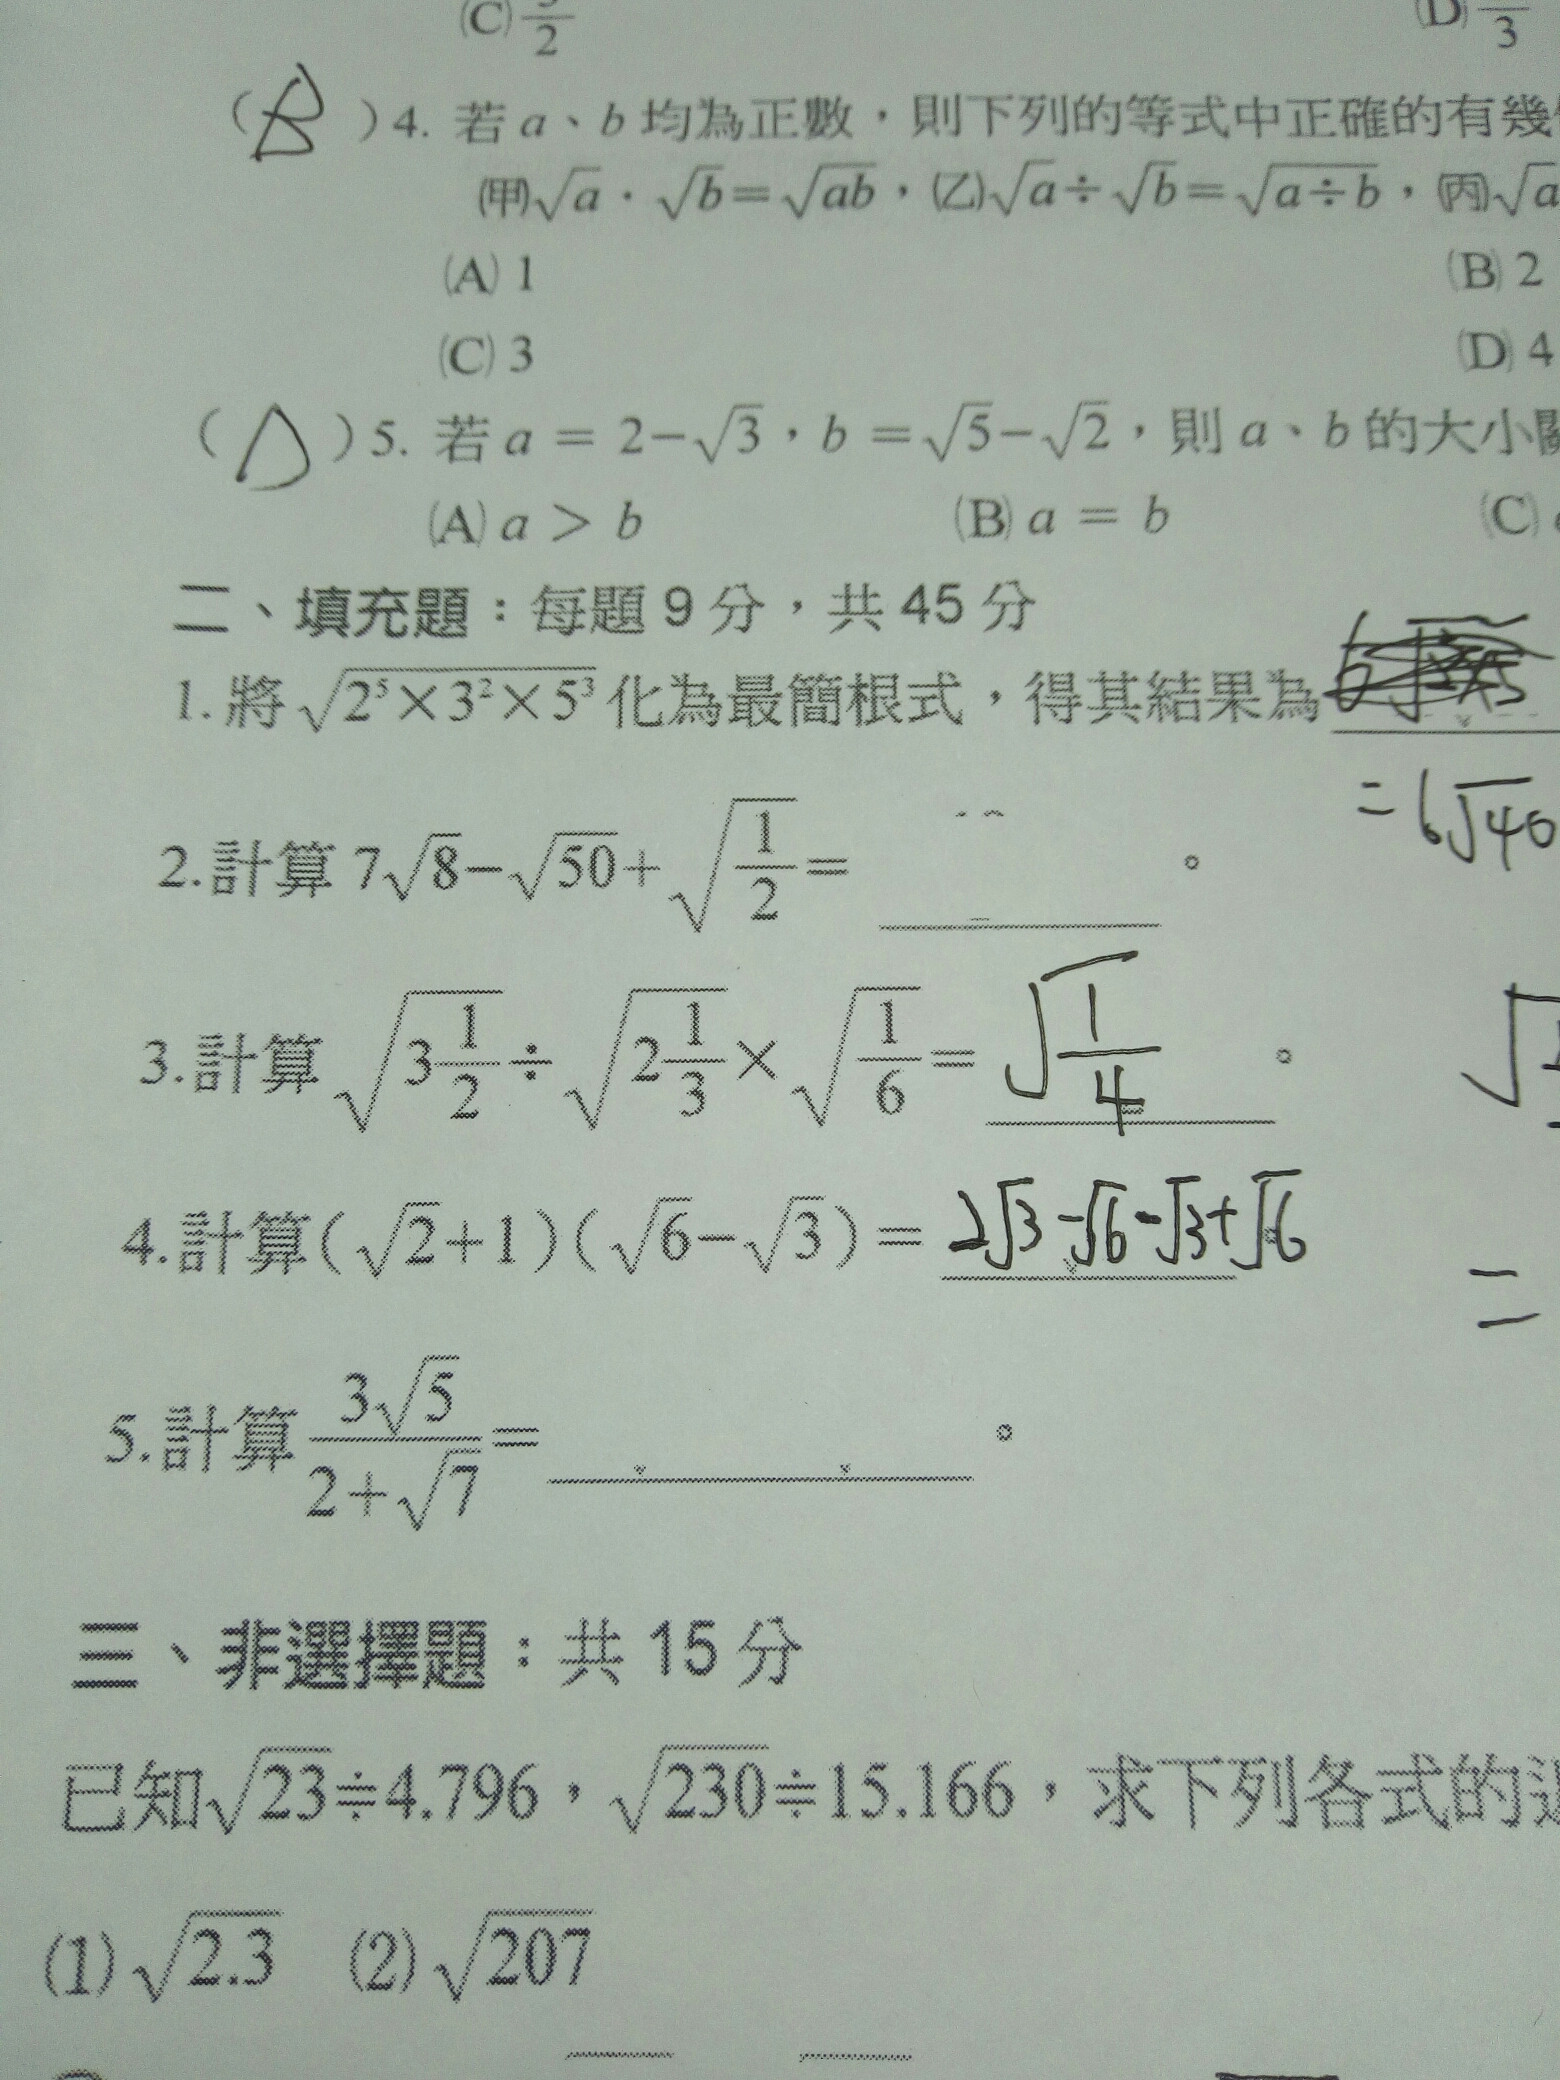 (C) 2
(D) 3
( B ) 4. 若 a、b 均為正數，則下列的等式中正確的有幾
(甲)√a · √b = √ab，(乙)√a ÷ √b = √(a÷b)，(丙)√a
(A) 1 (B) 2
(C) 3 (D) 4
( D ) 5. 若 a = 2−√3，b = √5−√2，則 a、b 的大小關
(A) a > b (B) a = b (C)
二、填充題：每題 9 分，共 45 分
1. 將 √(2⁵×3²×5³) 化為最簡根式，得其結果為
= 6√40
2. 計算 7√8−√50+√(1/2)= 。
3. 計算 √(3 1/2)÷√(2 1/3)×√(1/6)= √(1/4) 。
4. 計算(√2+1)(√6−√3)= 2√3−√6−√3+√6
=
5. 計算 3√5/(2+√7)= 。
三、非選擇題：共 15 分
已知√23≑4.796，√230≑15.166，求下列各式的近
(1) √2.3 (2) √207